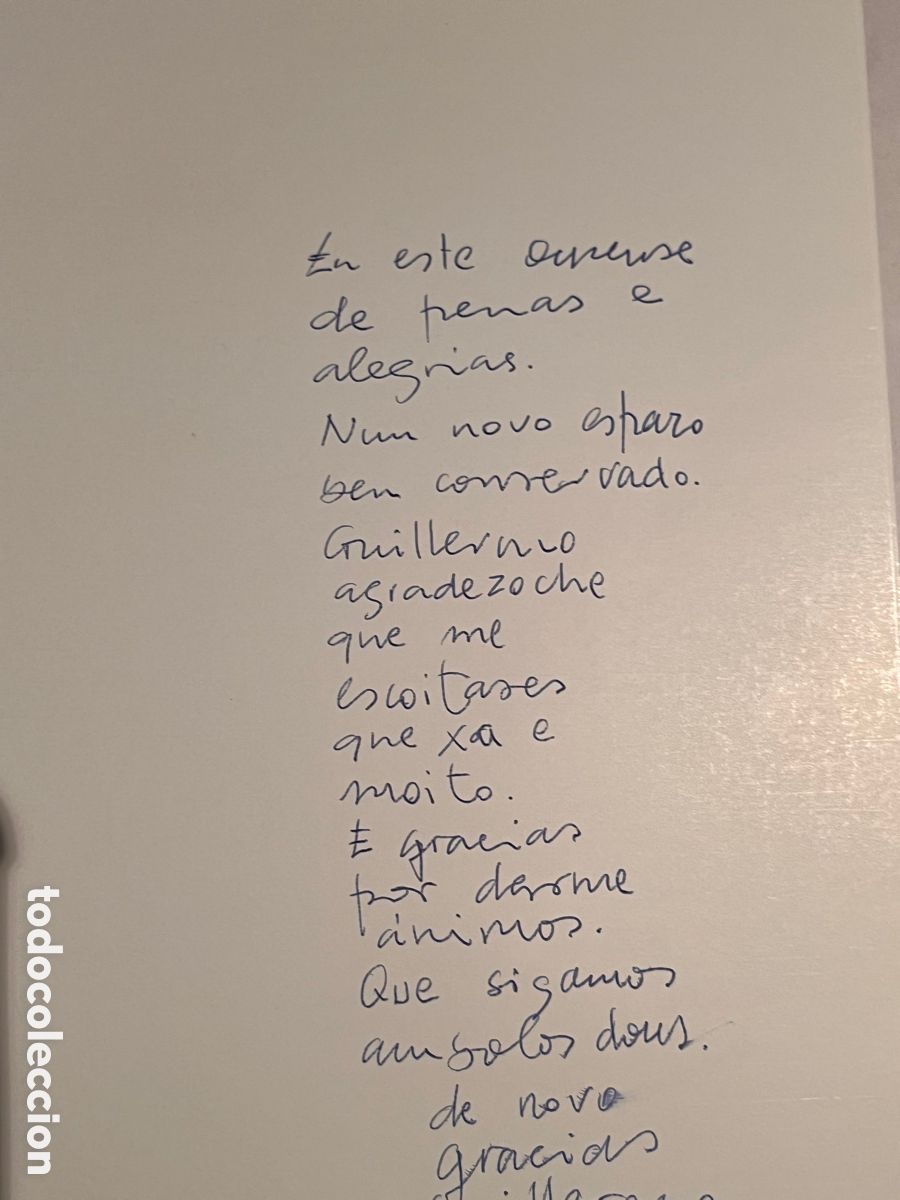 En este ourense
de penas e
alegrias.
Nun novo espazo
ben conservado.
Guillermo
agradezoche
que me
escoitases
que xa e
moito.
E gracias
por darme
ánimos.
Que sigamos
ambolos dous.
de novo
gracias
todocoleccion